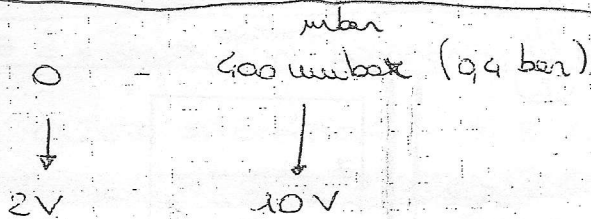 mbar
0 - 400 mbar (0,4 bar)
2V 10V